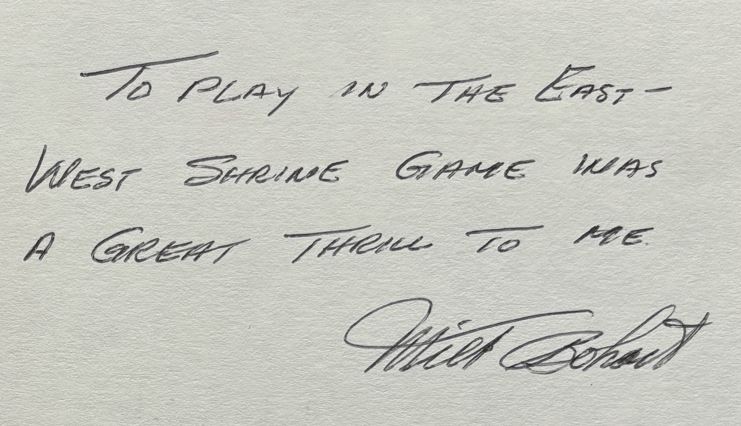 To PLAY IN THE EAST-
WEST SHRINE GAME WAS
A GREAT THRILL TO ME.
Milt Bohart